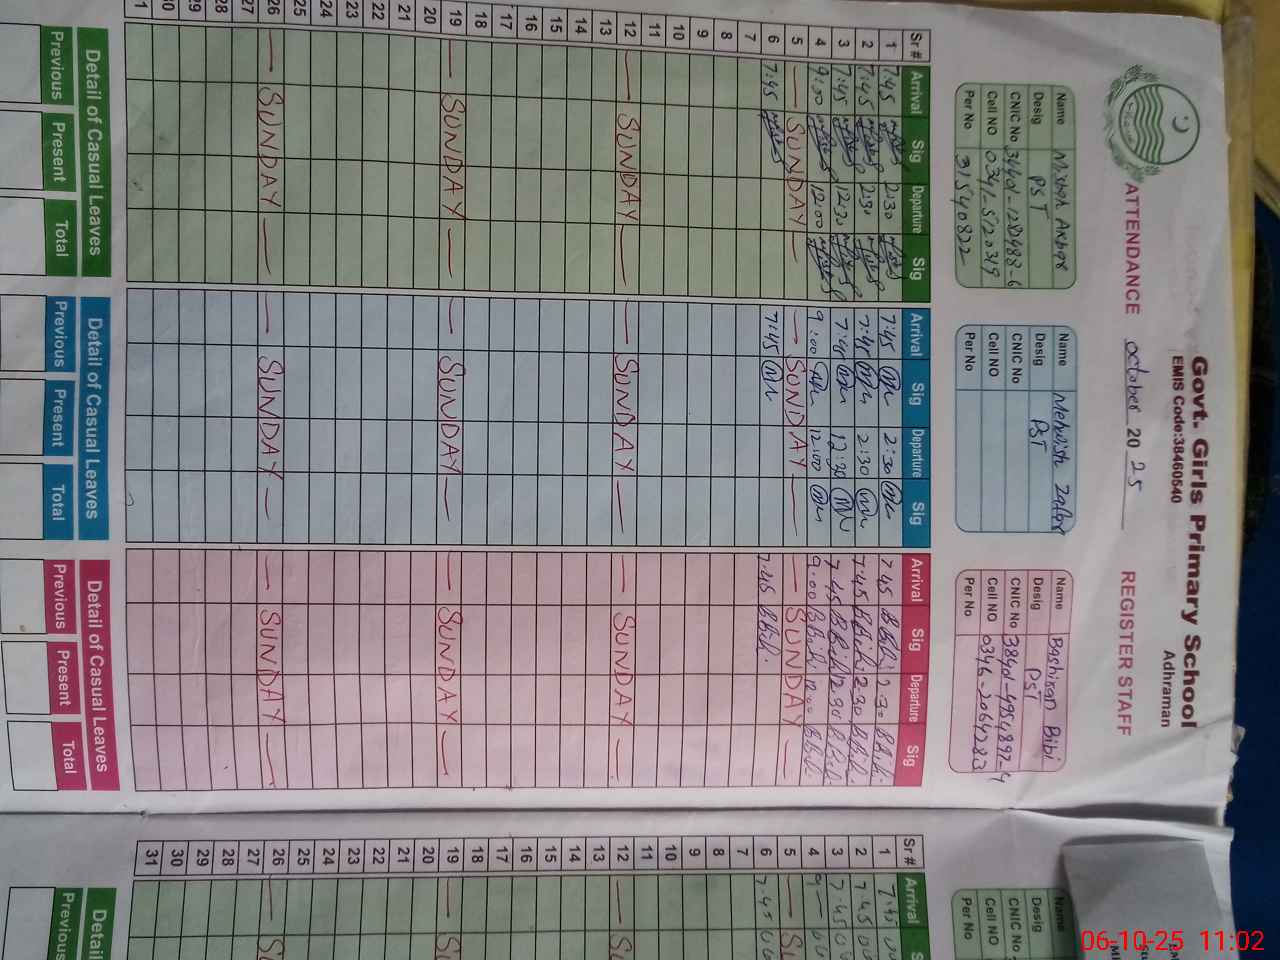 Govt. Girls Primary School
Adhraman
EMIS Code:38460540
ATTENDANCE October 2025 REGISTER STAFF
Name Misbah Akbar
Desig PST
CNIC No
Cell NO 0341-5120319
Per No 31540822
Name Mehwish Zafar
Desig PST
CNIC No
Cell NO
Per No
Name Bashiran Bibi
Desig PST
CNIC No 38401-4954892-4
Cell NO 0346-2064283
Per No
Sr # Arrival Sig Departure Sig Arrival Sig Departure Sig Arrival Sig Departure Sig
1 7:45 2:30 7:45 2:30 7:45 2:30
2 7:45 2:30 7:45 2:30 7:45 2:30
3 7:45 12:30 7:45 12:30 7:45 12:30
4 9:00 12:00 9:00 12:00 9:00 12:00
5 — SUNDAY — — SUNDAY — — SUNDAY —
6 7:45 7:45 7:45
7
8
9
10
11
12 — SUNDAY — — SUNDAY — — SUNDAY —
13
14
15
16
17
18
19 — SUNDAY — — SUNDAY — — SUNDAY —
20
21
22
23
24
25
26 — SUNDAY — — SUNDAY — — SUNDAY —
27
28
29
30
Detail of Casual Leaves
Previous Present Total
Detail of Casual Leaves
Previous Present Total
Detail of Casual Leaves
Previous Present Total
Name
Desig
CNIC No
Cell NO
Per No
Sr # Arrival
1 7:45
2 7:45
3 7:45
4
5
6 7:45
7
8
9
10
11
12
13
14
15
16
17
18
19
20
21
22
23
24
25
26
27
28
29
30
31
Detail
Previous
06-10-25 11:02